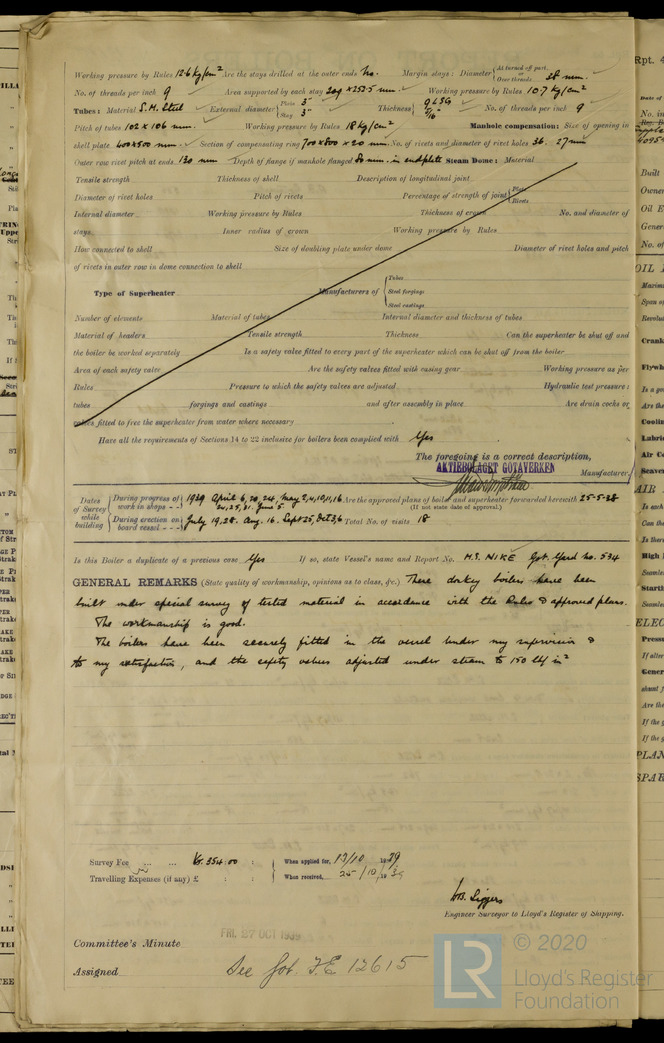 Working pressure by Rules 12.6 kg/cm² Are the stays drilled at the outer ends No. Margin stays: Diameter { At turned off part, or Over threads 38 mm.
No. of threads per inch 9 Area supported by each stay 309 x 252.5 mm. Working pressure by Rules 10.7 kg/cm²
Tubes: Material S.M. Steel External diameter { Plain 3" Stay 3" Thickness { 9 LSG 5/16" No. of threads per inch 9
Pitch of tubes 102 x 106 mm. Working pressure by Rules 18 kg/cm² Manhole compensation: Size of opening in
shell plate 400x500 mm. Section of compensating ring 700x800 x 20 mm. No. of rivets and diameter of rivet holes 36. 27 mm
Outer row rivet pitch at ends 130 mm Depth of flange if manhole flanged 80 mm. in endplate Steam Dome: Material
Tensile strength Thickness of shell Description of longitudinal joint
Diameter of rivet holes Pitch of rivets Percentage of strength of joint { Plate Rivets
Internal diameter Working pressure by Rules Thickness of crown No. and diameter of
stays Inner radius of crown Working pressure by Rules
How connected to shell Size of doubling plate under dome Diameter of rivet holes and pitch
of rivets in outer row in dome connection to shell
Type of Superheater Manufacturers of { Tubes Steel forgings Steel castings
Number of elements Material of tubes Internal diameter and thickness of tubes
Material of headers Tensile strength Thickness Can the superheater be shut off and
the boiler be worked separately Is a safety valve fitted to every part of the superheater which can be shut off from the boiler
Area of each safety valve Are the safety valves fitted with easing gear Working pressure as per
Rules Pressure to which the safety valves are adjusted Hydraulic test pressure:
tubes forgings and castings and after assembly in place Are drain cocks or
valves fitted to free the superheater from water where necessary
Have all the requirements of Sections 14 to 22 inclusive for boilers been complied with Yes
The foregoing is a correct description,
AKTIEBOLAGET GÖTAVERKEN Manufacturer.
Dates of Survey while building { During progress of work in shops - - { 1939 April 6, 20, 24, May 2, 4, 10, 11, 16 Are the approved plans of boiler and superheater forwarded herewith 25-5-38
24, 25, 31. June 5 (If not state date of approval.)
During erection on board vessel - - { July 19, 28. Aug. 16. Sept 25, Oct 3, 6 Total No. of visits 18
Is this Boiler a duplicate of a previous case Yes If so, state Vessel's name and Report No. M.S. NIKE Got. Yard No. 534
GENERAL REMARKS (State quality of workmanship, opinions as to class, &c.) These donkey boilers have been
built under special survey of tested material in accordance with the Rules & approved plans.
The workmanship is good.
The boilers have been securely fitted in the vessel under my supervision &
to my satisfaction, and the safety valves adjusted under steam to 150 lb/in²
Survey Fee ... ... Kr. 354:00 : When applied for, 17/10 1939
Travelling Expenses (if any) £ : : When received, 25/10/1939
Engineer Surveyor to Lloyd's Register of Shipping.
Committee's Minute FRI. 27 OCT 1939
Assigned See Got. F.E 12615
© 2020
LR
Lloyd's Register
Foundation